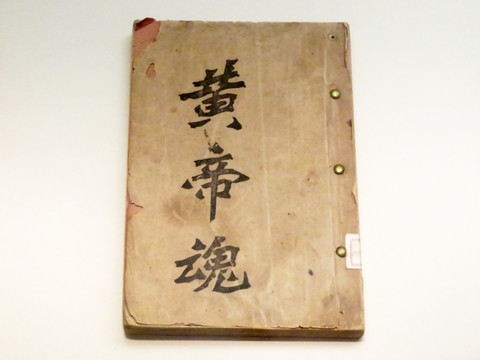 黃帝魂